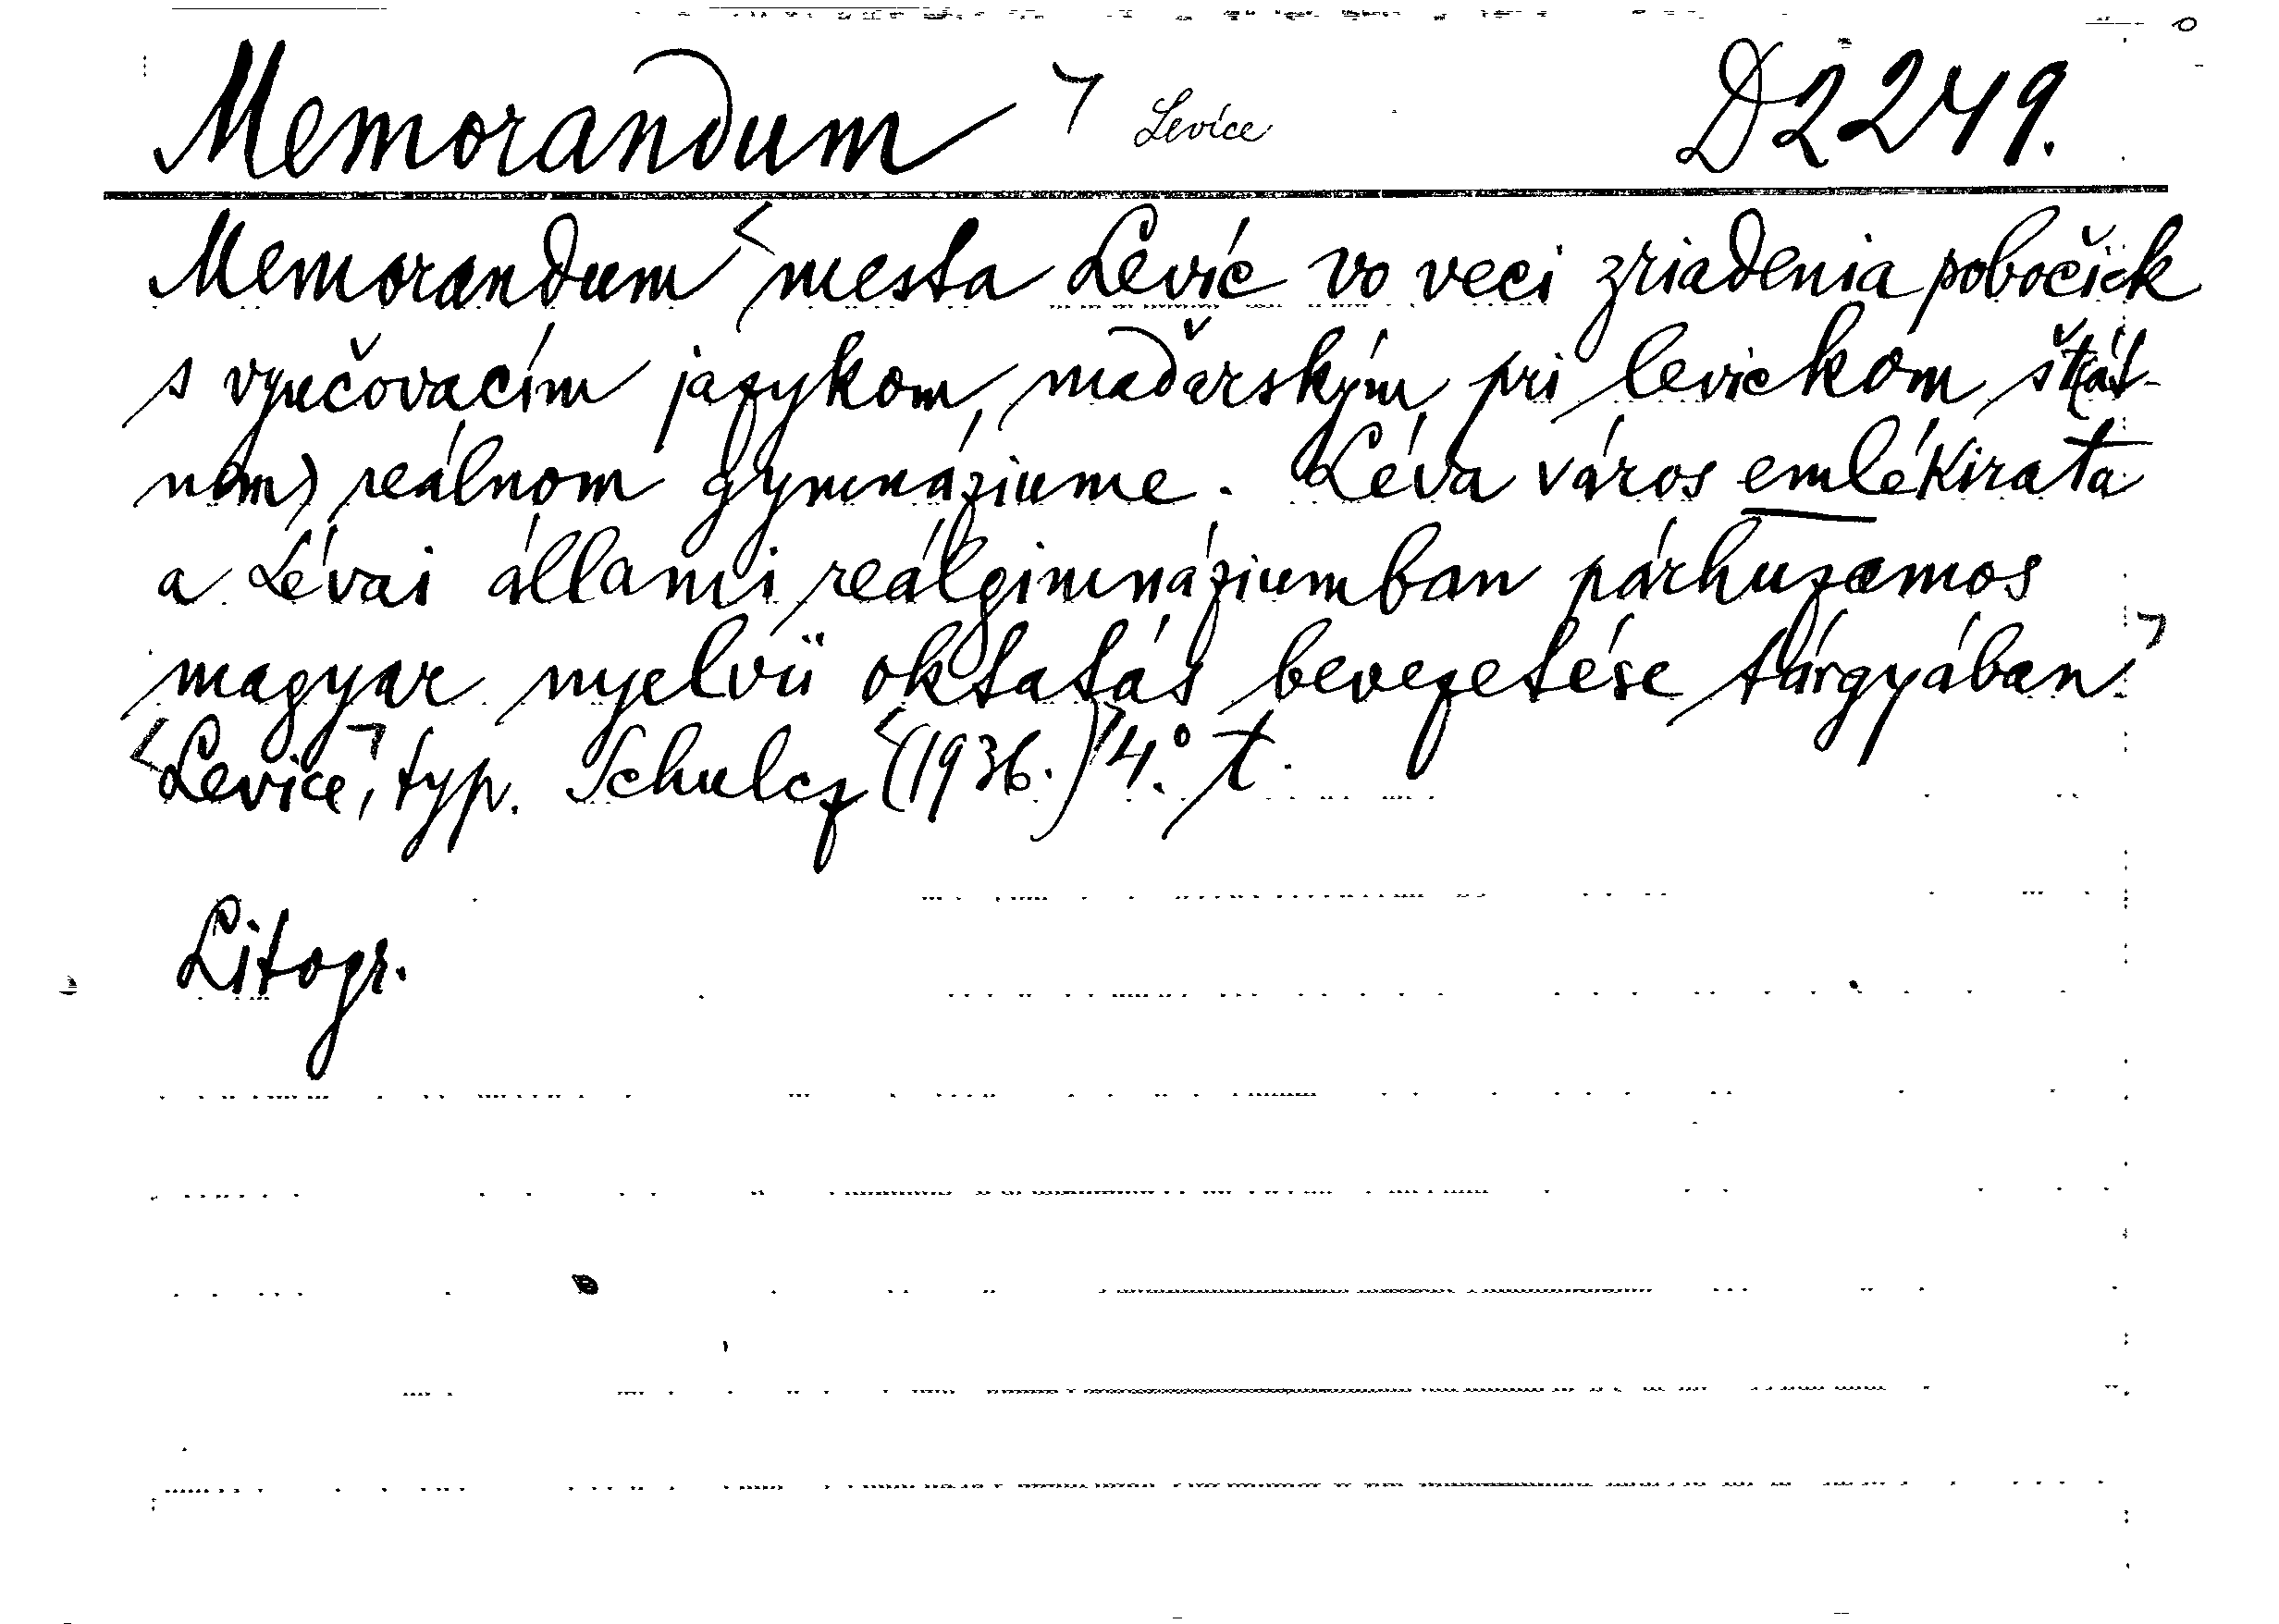 Memorandum ⌝ Levice D 2249.
Memorandum < mesta Levíc vo veci zriadenia pobočiek
s vyučovacím jazykom maďarským pri levickom št(át-
nom) reálnom gymnáziume. Léva város emlékirata
a Lévai állami reálgimnáziumban párhuzamos
magyar nyelvü oktatás bevezetése tárgyában ⌝
<Levice⌝, typ. Schulcz <(1936.)⌝ 4.° t.
Litogr.